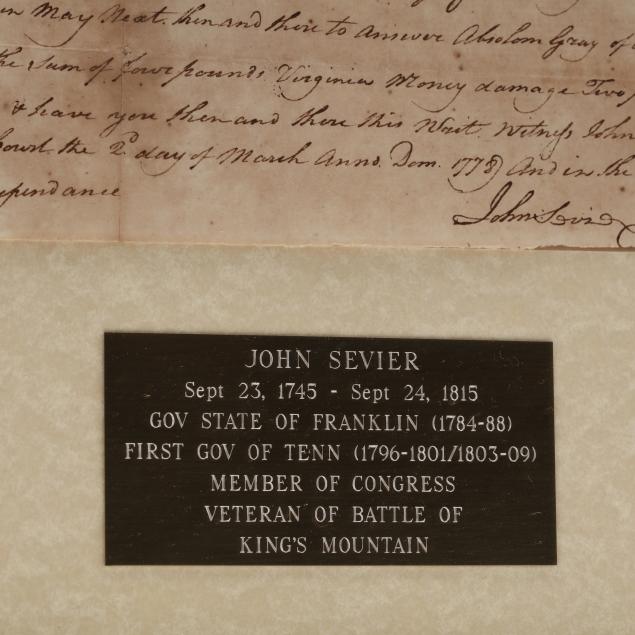 in May Next. then and there to answer Absolom Gray of
the Sum of four pounds Virginia Money damage Two
& have you then and there this Writ. Witness John
Court the 2d day of March Anno. Dom. 1778 And in the
ependance
John Sevier
JOHN SEVIER
Sept 23, 1745 - Sept 24, 1815
GOV STATE OF FRANKLIN (1784-88)
FIRST GOV OF TENN (1796-1801/1803-09)
MEMBER OF CONGRESS
VETERAN OF BATTLE OF
KING'S MOUNTAIN